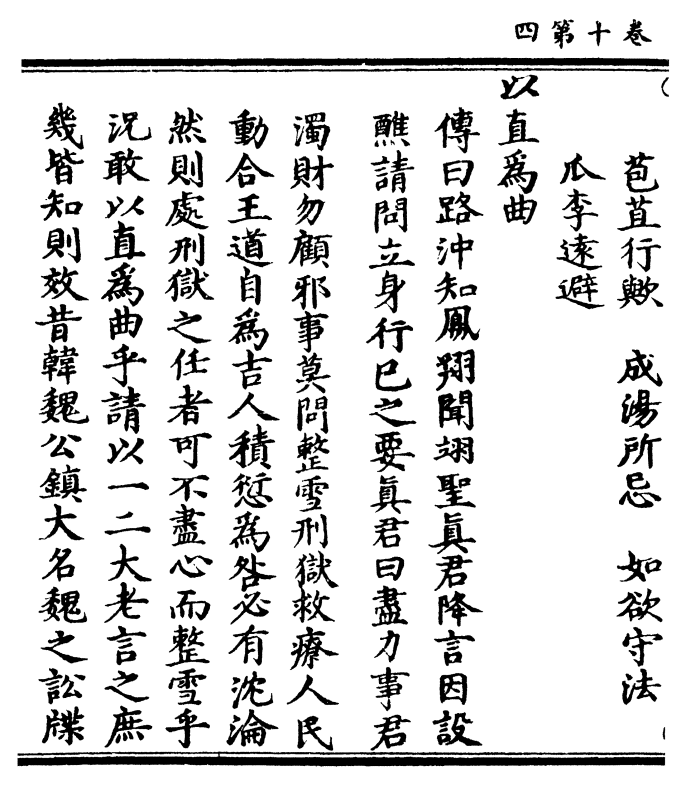 卷十第四
苞苴行歟　成湯所忌　如欲守法
瓜李遠避
以直爲曲
傳曰路沖知鳳翔聞翊聖眞君降言因設
醮請問立身行已之要眞君曰盡力事君
濁財勿顧邪事莫問整雪刑獄救療人民
動合王道自爲吉人積愆爲咎必有沈淪
然則處刑獄之任者可不盡心而整雪乎
況敢以直爲曲乎請以一二大老言之庶
幾皆知則效昔韓魏公鎮大名魏之訟牒